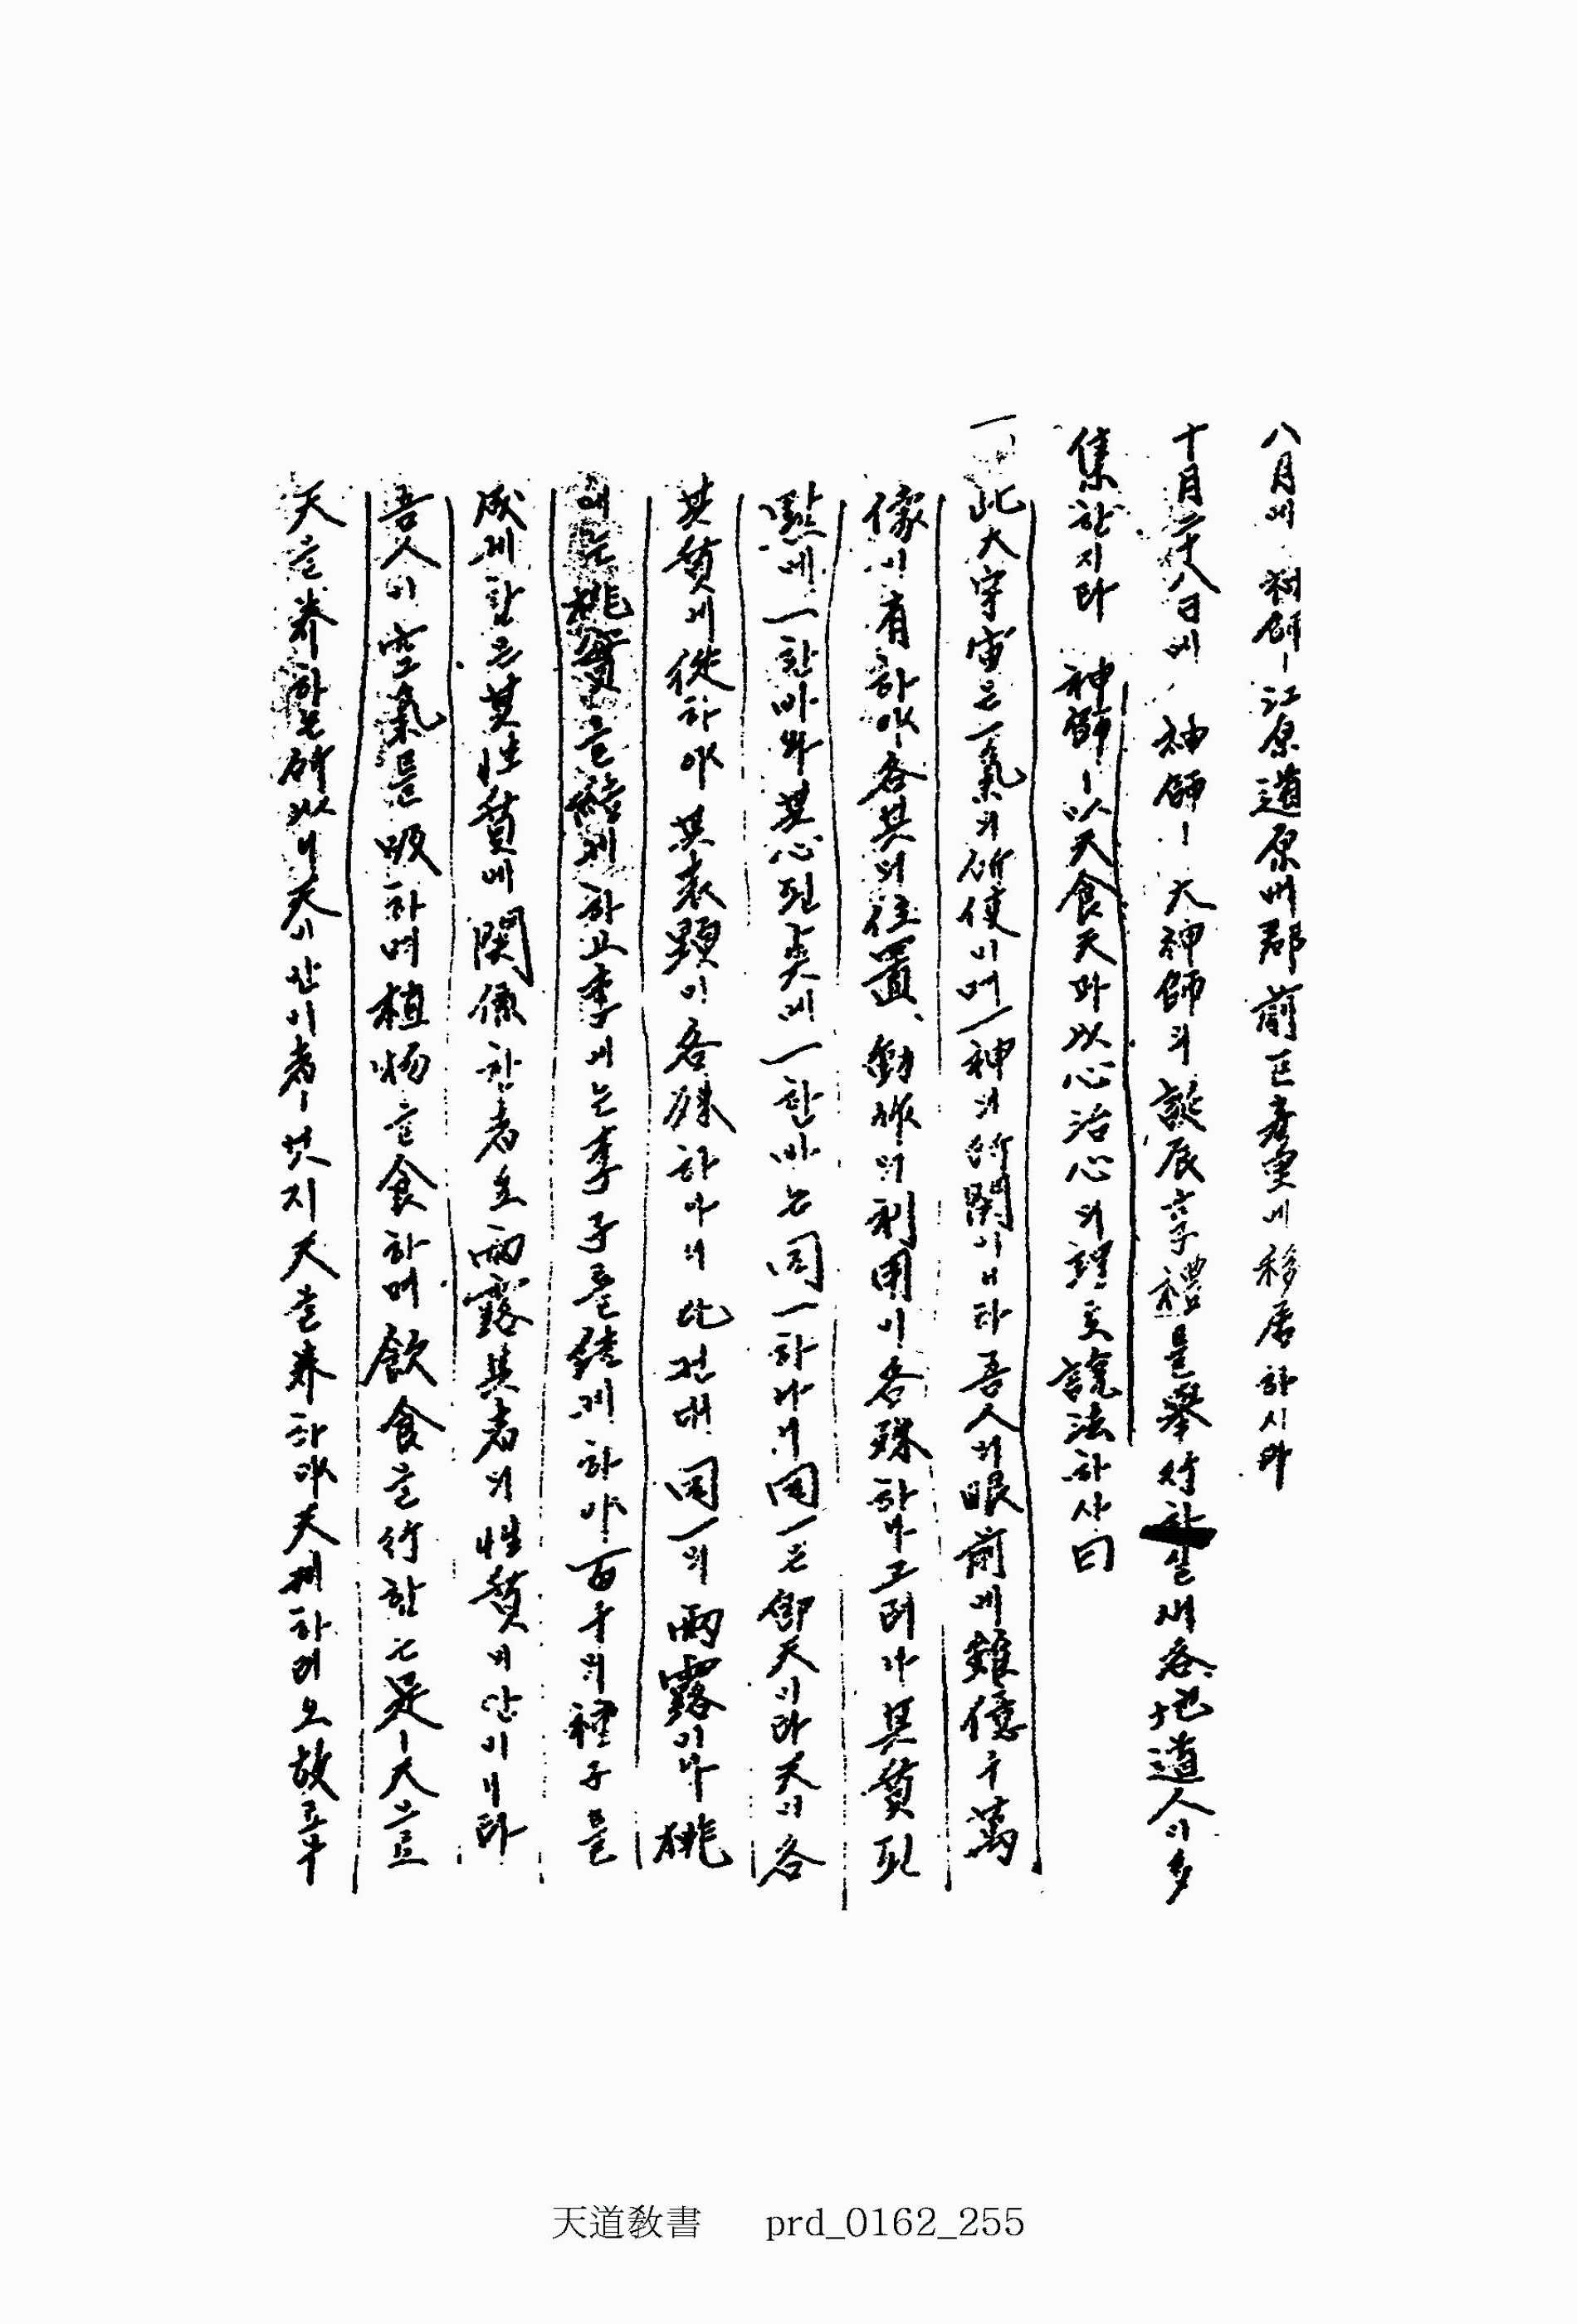 八月에 神師ㅣ 江原道原州郡前巨彦里에 移居하시다
十月二十八日에 神師ㅣ 大神師의 誕辰享禮를 擧行하실새 各地道人이 多
集한지라 神師ㅣ 以天食天과 以心治心의 理로 說法하사曰
一、此大宇宙는 一氣의 所使이며 一神의 所關이니라 吾人의 眼前에 雖億千萬
像이 有하야 各其의 位置、動作의 利用이 各殊하나 그러나 其質된
點에 一한 바와 其心된 點에 一한 바는 同一하나니 同一은 卽天이라 天이 各
其質에 從하야 其表顯이 各殊하나니 比컨대 同一의 雨露이나 桃
에는 桃實을 結케하고 李에는 李子를 結케하야 百千의 種子를
成케함은 其性質에 關係한 者오 雨露其者의 性質이 안이니라
吾人이 空氣를 吸하며 植物을 食하며 飮食을 行함은 是ㅣ 天으로
天을 養하는 所以니 天이 안이者ㅣ 엇지 天을 養하야 天케하리오 故로 우
天道敎書 prd_0162_255